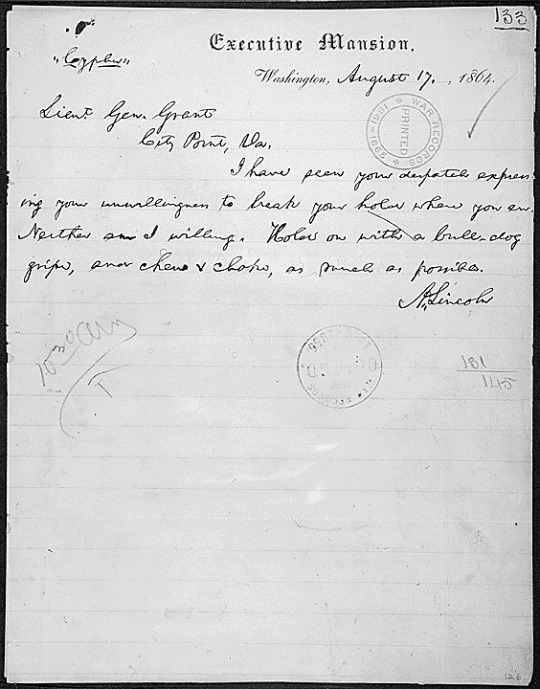 133
"Cypher"
Executive Mansion,
Washington, August 17, 1864.
Lieut. Gen. Grant
City Point, Va.
I have seen your despatch express-
ing your unwillingness to break your hold where you are.
Neither am I willing. Hold on with a bull-dog
gripe, and chew & choke, as much as possible.
A. Lincoln
WAR RECORDS
1861-1865
PRINTED
10 30 AM
131
145
126